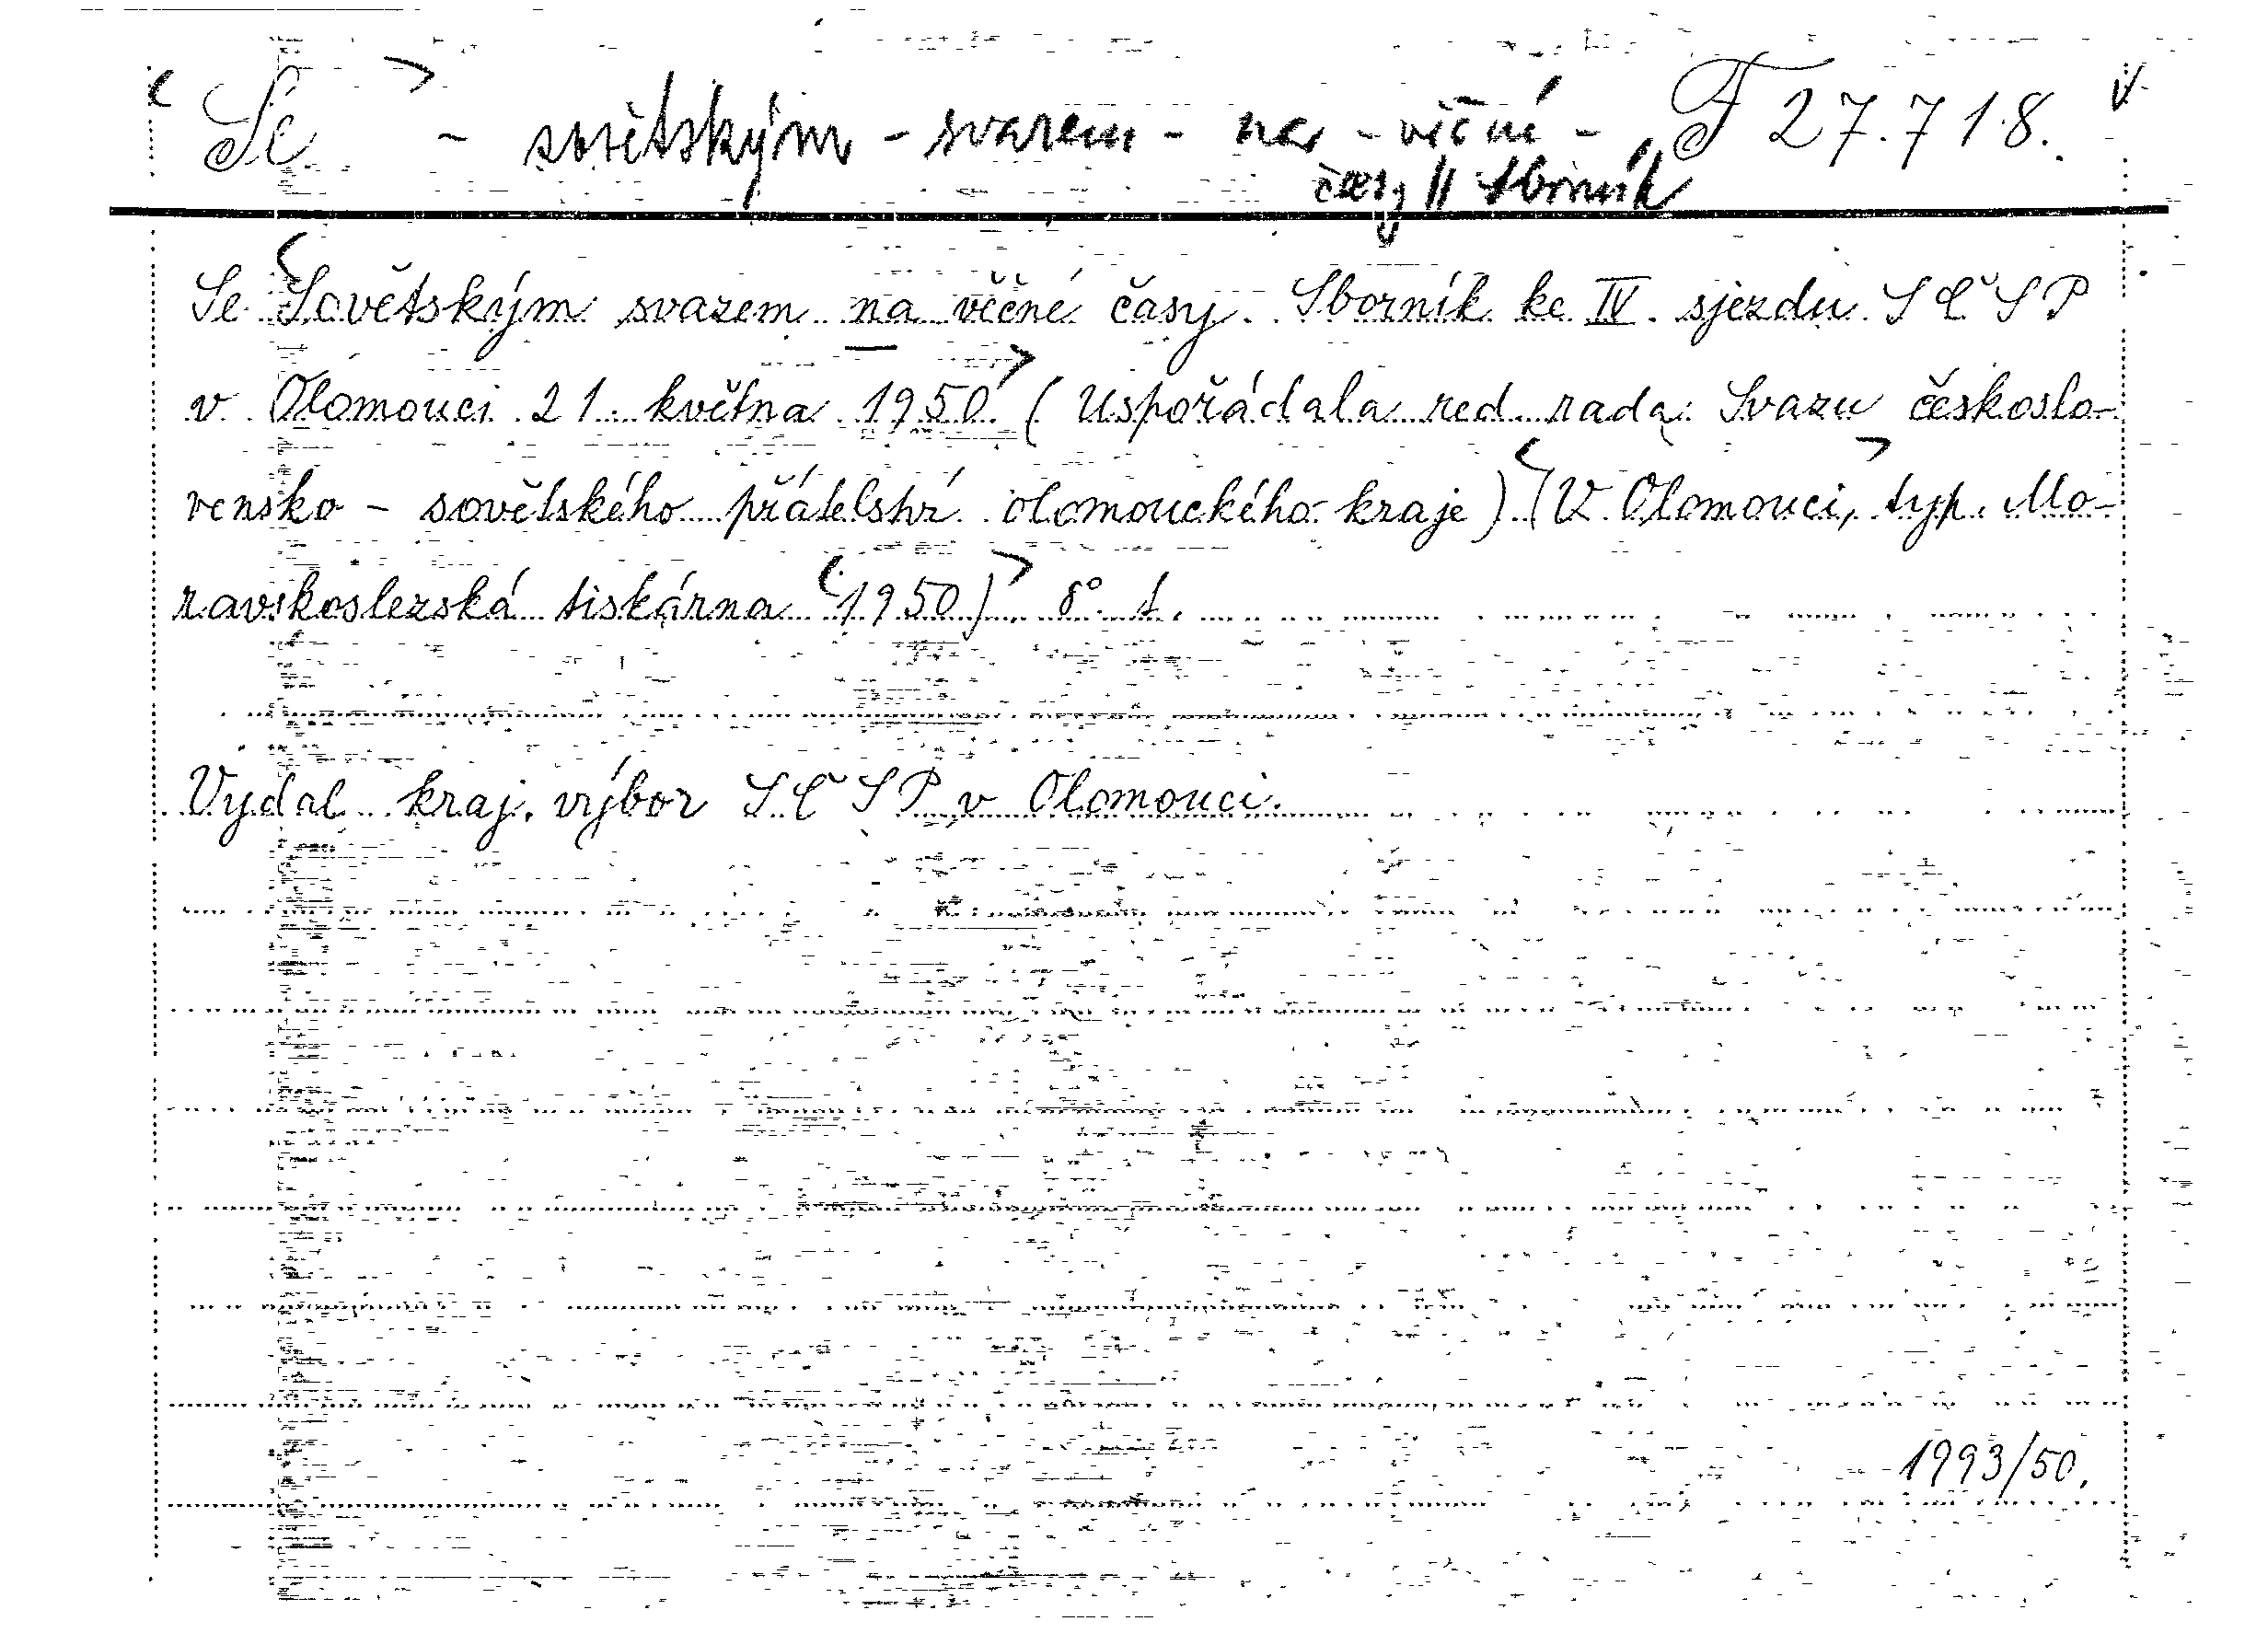 Se - sovětským - svazem - na - věčné - F 27.718.
časy || Sborník
Se Sovětským svazem na věčné časy. Sborník ke IV. sjezdu SČSP
v Olomouci 21. května 1950 (Uspořádala red. rada Svazu českoslo-
vensko - sovětského přátelství olomouckého kraje) (V Olomouci, typ. Mo-
ravskoslezská tiskárna 1950) 8°. t.
Vydal kraj. výbor SČSP v Olomouci.
1993/50.